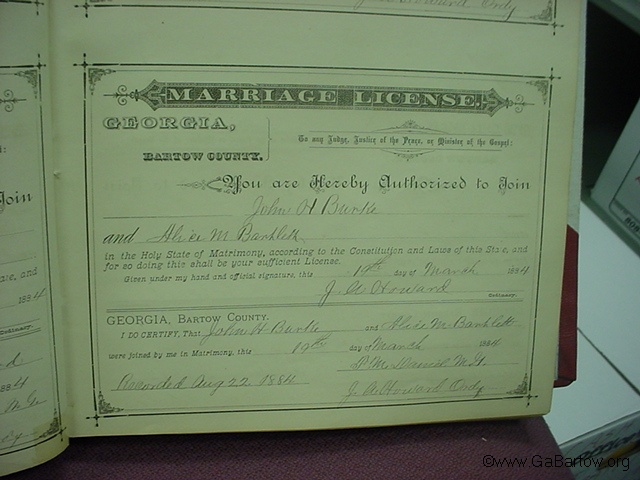 MARRIAGE LICENSE.
GEORGIA,
BARTOW COUNTY.
To any Judge, Justice of the Peace, or Minister of the Gospel:
You are Hereby Authorized to Join
John H Burke
and Alice M Bartlett
in the Holy State of Matrimony, according to the Constitution and Laws of this State, and
for so doing this shall be your sufficient License.
Given under my hand and official signature, this day of March 1884
J. A. Howard
Ordinary.
GEORGIA, BARTOW COUNTY.
I DO CERTIFY, That John H Burke and Alice M Bartlett
were joined by me in Matrimony, this 19th day of March 1884
McDaniel M.G.
Recorded Aug 22 1884 J. A. Howard Ordy
Join
ate, and
1884
Ordinary.
1884
M.G.
©www.GaBartow.org